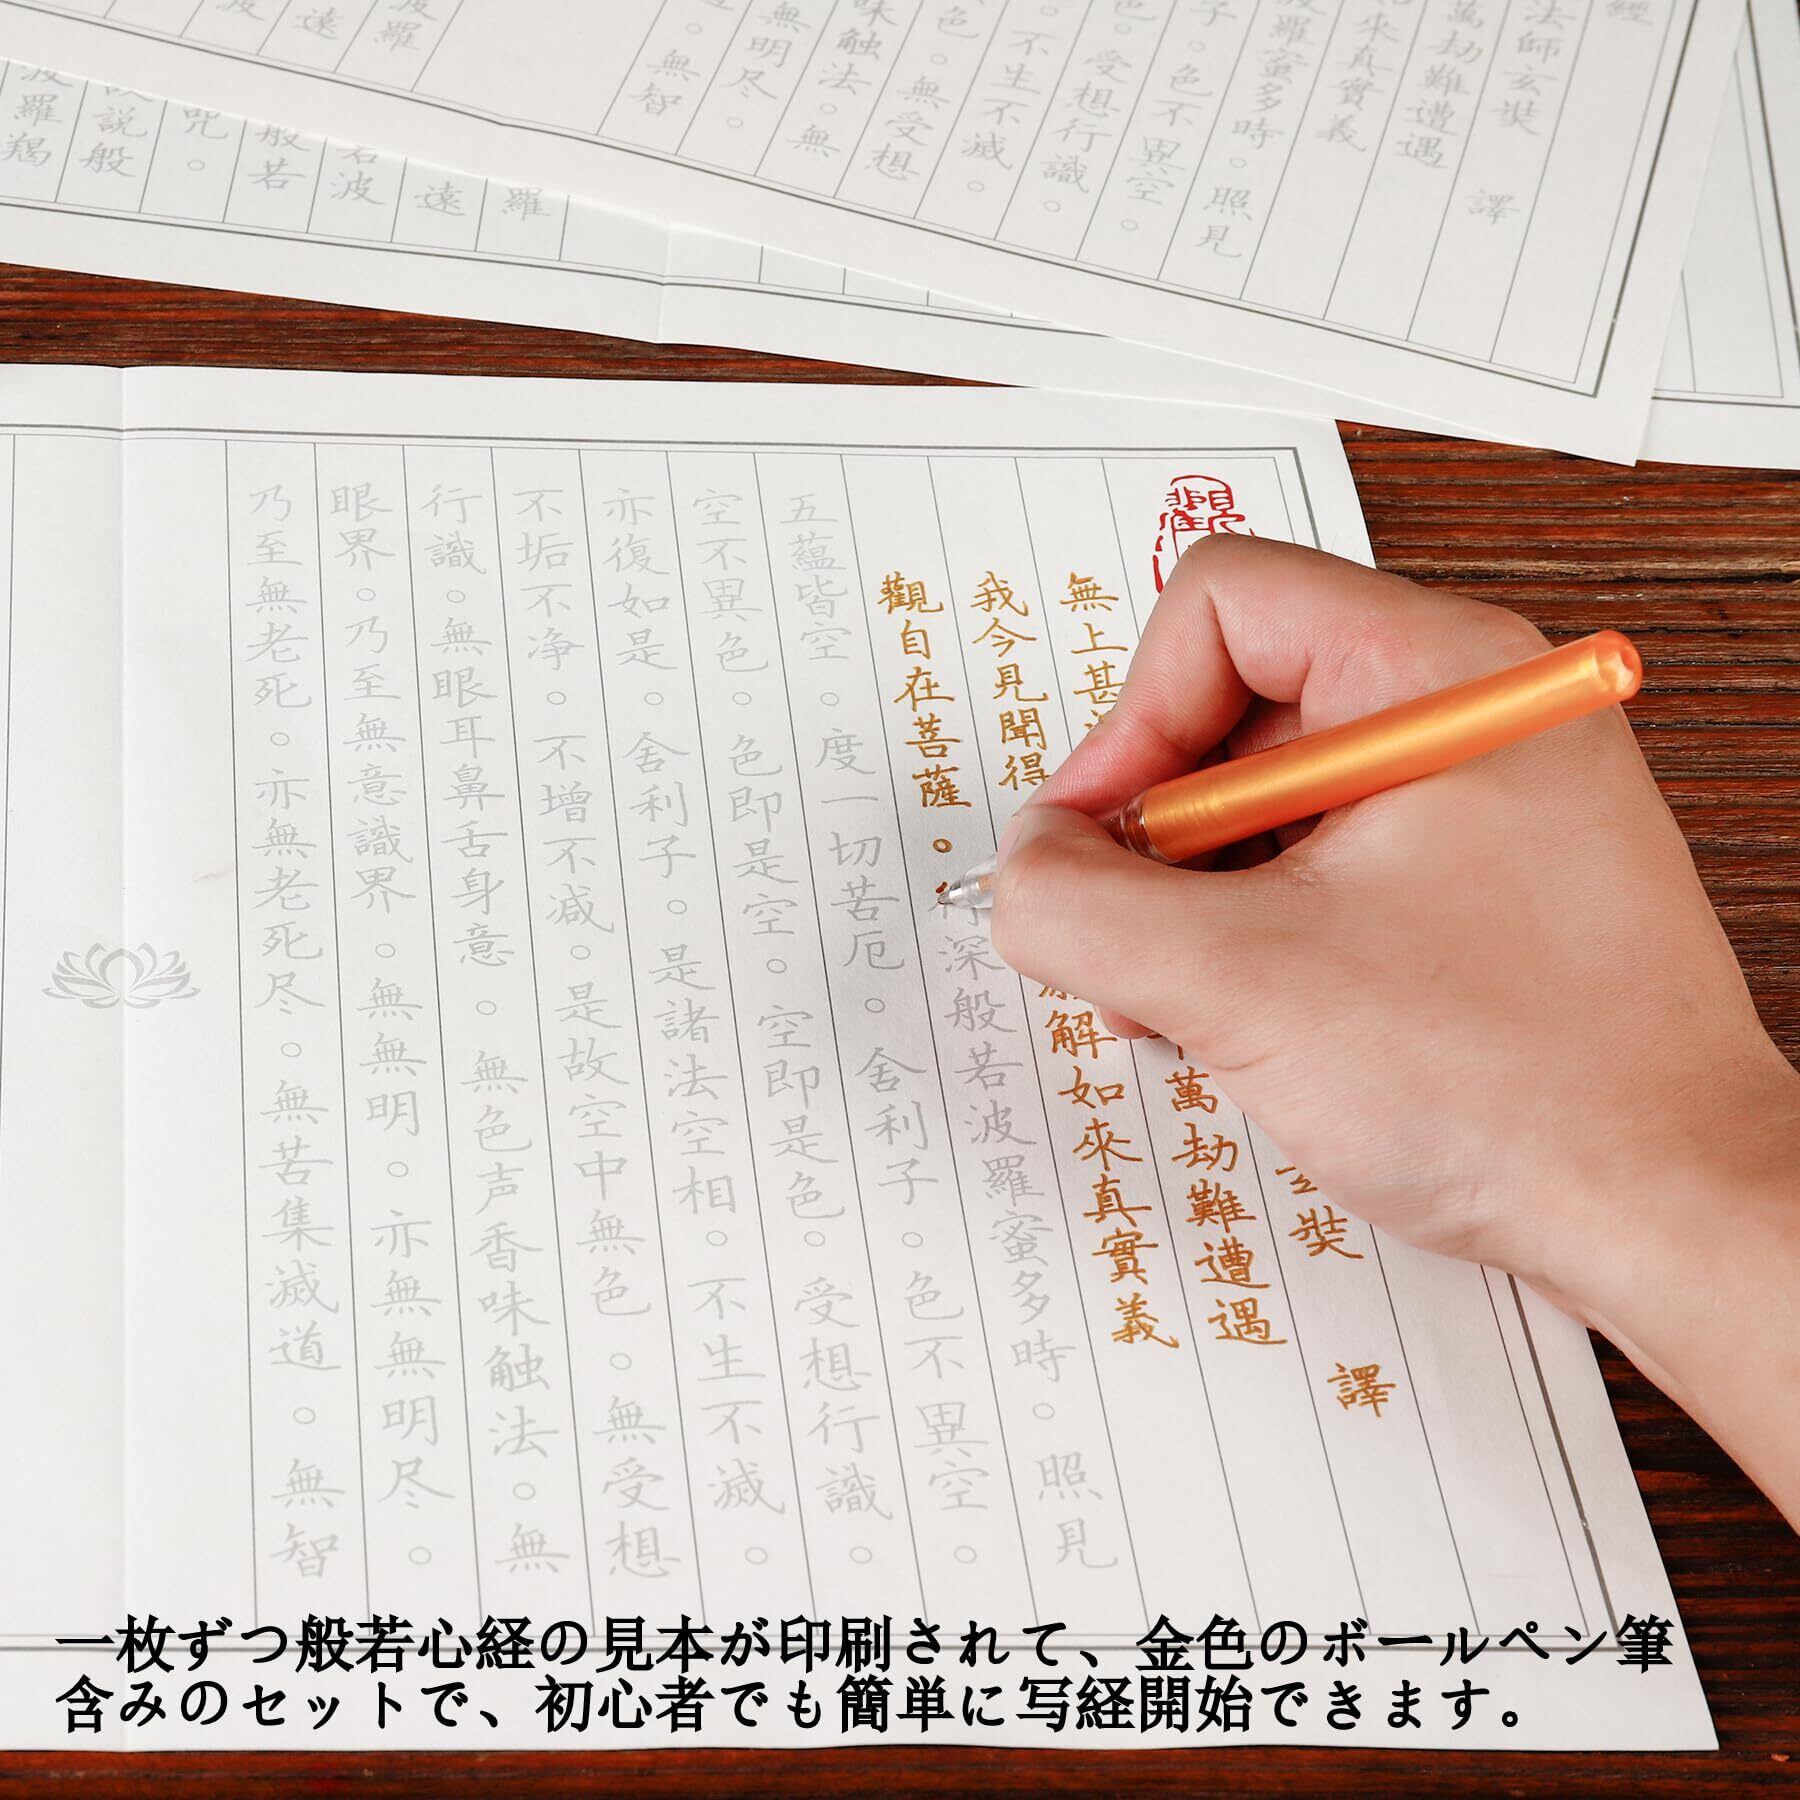 經
法師玄奘 譯
萬劫難遭遇
來真實義
羅蜜多時。照見
子。色不異空。
色。受想行識。
。不生不滅。
色。無受想
味触法。無
無明尽。
。無智
波羅
遠
波
羅
遠
若波
般若
咒。
説般
波羅羯
觀
玄奘 譯
無上甚 萬劫難遭遇
我今見聞得 解如來真實義
觀自在菩薩。行深般若波羅蜜多時。照見
五蘊皆空。度一切苦厄。舍利子。色不異空。
空不異色。色即是空。空即是色。受想行識。
亦復如是。舍利子。是諸法空相。不生不滅。
不垢不净。不增不减。是故空中無色。無受想
行識。無眼耳鼻舌身意。無色声香味触法。無
眼界。乃至無意識界。無無明。亦無無明尽。
乃至無老死。亦無老死尽。無苦集滅道。無智
一枚ずつ般若心経の見本が印刷されて、金色のボールペン筆
含みのセットで、初心者でも簡単に写経開始できます。